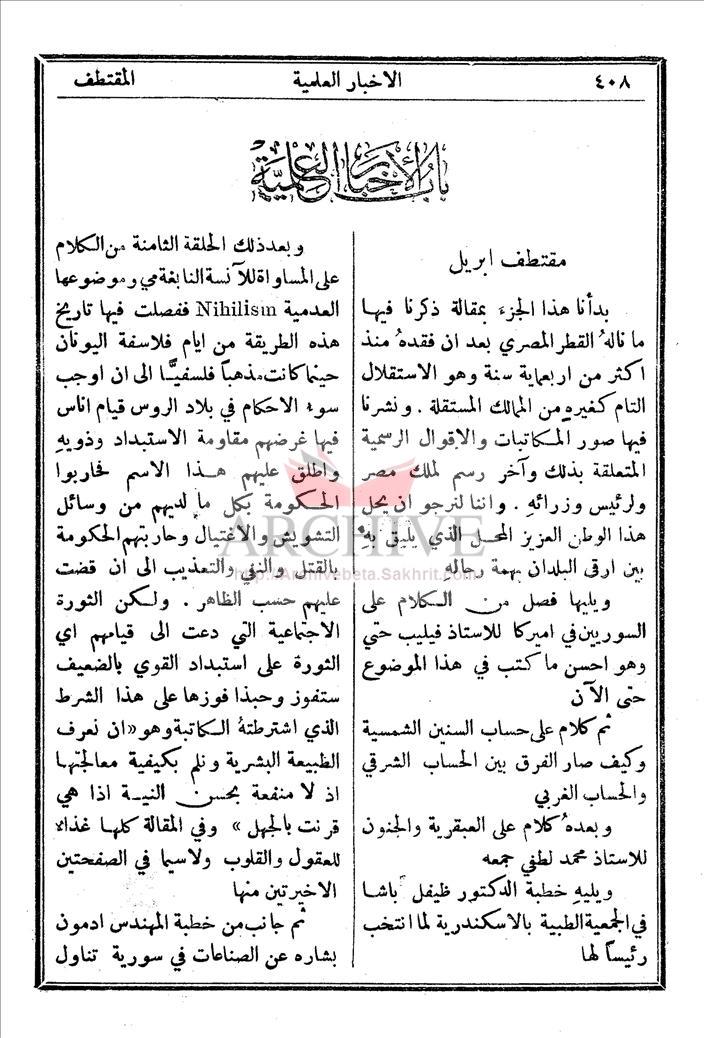 ٤٠٨
الاخبار العلمية
المقتطف
باب الأخبار العلمية
مقتطف ابريل
بدأنا هذا الجزء بمقالة ذكرنا فيها
ما نالهُ القطر المصري بعد ان فقدهُ منذ
اكثر من اربعماية سنة وهو الاستقلال
التام كغيرهِ من الممالك المستقلة . ونشرنا
فيها صور المكاتبات والاقوال الرسمية
المتعلقة بذلك وآخر رسم لملك مصر
ولرئيس وزرائهِ . واننا لنرجو ان يحل
هذا الوطن العزيز المحل الذي يليق بهِ
بين ارقى البلدان بهمة رجاله
ويليها فصل من الكلام على
السوريين في اميركا للاستاذ فيليب حتي
وهو احسن ما كتب في هذا الموضوع
حتى الآن
ثم كلام على حساب السنين الشمسية
وكيف صار الفرق بين الحساب الشرقي
والحساب الغربي
وبعدهُ كلام على العبقرية والجنون
للاستاذ محمد لطفي جمعه
ويليهِ خطبة الدكتور ظيفل باشا
في الجمعية الطبية بالاسكندرية لما انتخب
رئيساً لها
وبعد ذلك الحلقة الثامنة من الكلام
على المساواة للآنسة النابغة مي وموضوعها
العدمية Nihilism ففصلت فيها تاريخ
هذه الطريقة من ايام فلاسفة اليونان
حينما كانت مذهباً فلسفيًّا الى ان اوجب
سوء الاحكام في بلاد الروس قيام اناس
فيها غرضهم مقاومة الاستبداد وذويهِ
واطلق عليهم هذا الاسم فحاربوا
الحكومة بكل ما لديهم من وسائل
التشويش والاغتيال وحاربتهم الحكومة
بالقتل والنفي والتعذيب الى ان قضت
عليهم حسب الظاهر . ولكن الثورة
الاجتماعية التي دعت الى قيامهم اي
الثورة على استبداد القوي بالضعيف
ستفوز وحبذا فوزها على هذا الشرط
الذي اشترطتهُ الكاتبة وهو «ان نعرف
الطبيعة البشرية ونلم بكيفية معالجتها
اذ لا منفعة بحسن النية اذا هي
قرنت بالجهل» وفي المقالة كلها غذاء
للعقول والقلوب ولاسيما في الصفحتين
الاخيرتين منها
ثم جانب من خطبة المهندس ادمون
بشاره عن الصناعات في سورية تناول
ARCHIVE
http://Archivebeta.Sakhrit.com